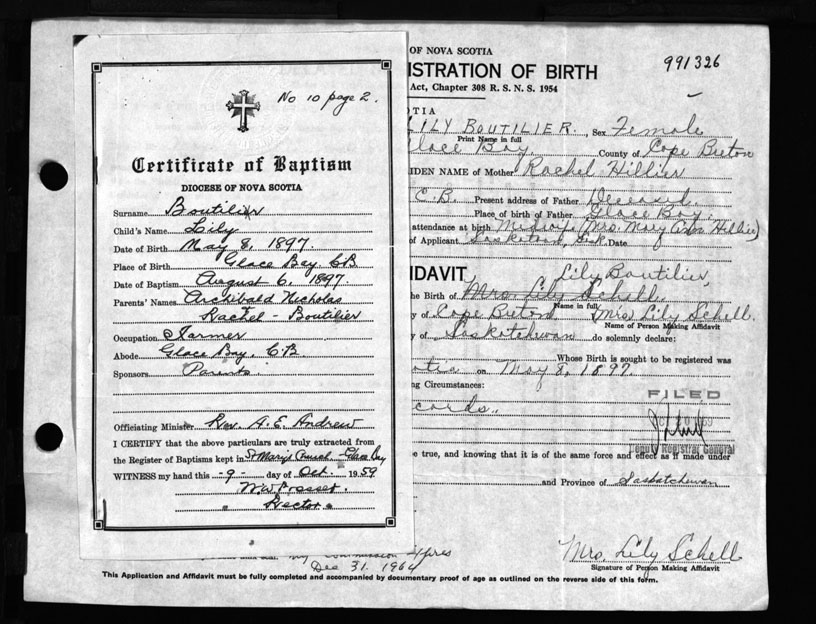 No 10 page 2.
Certificate of Baptism
DIOCESE OF NOVA SCOTIA
Surname Boutilier
Child's Name Lily
Date of Birth May 8, 1897.
Place of Birth Glace Bay, C.B.
Date of Baptism August 6, 1897
Parents' Names Archibald Nicholas
Rachel - Boutilier
Occupation Farmer
Abode Glace Bay, C.B
Sponsors Parents
Officiating Minister Rev. A. E. Andrew
I CERTIFY that the above particulars are truly extracted from
the Register of Baptisms kept in St Mary's Church - Glace Bay
WITNESS my hand this -9- day of Oct. 1959
Rector.
OF NOVA SCOTIA
991326
ISTRATION OF BIRTH
Act, Chapter 308 R. S. N. S. 1954
OTIA
LILY BOUTILIER. , Sex Female
Print Name in full
Glace Bay, County of Cape Breton
IDEN NAME of Mother Rachel Hillier
C.B. Present address of Father Deceased.
Place of birth of Father Glace Bay.
attendance at birth Midwife (Mrs. Mary Hillier)
of Applicant Saskatoon, Sask. Date
FIDAVIT, Lily Boutilier,
the Birth of Mrs. Lily Schell.
Name in full
y of Cape Breton Mrs. Lily Schell.
Name of Person Making Affidavit
y of Saskatchewan do solemnly declare:
Whose Birth is sought to be registered was
otia on May 8, 1897.
ng Circumstances:
FILED
cords.
Deputy Registrar General
be true, and knowing that it is of the same force and effect as if made under
and Province of Saskatchewan
My Commission Expires
Dec 31. 1964
Mrs. Lily Schell
Signature of Person Making Affidavit
This Application and Affidavit must be fully completed and accompanied by documentary proof of age as outlined on the reverse side of this form.